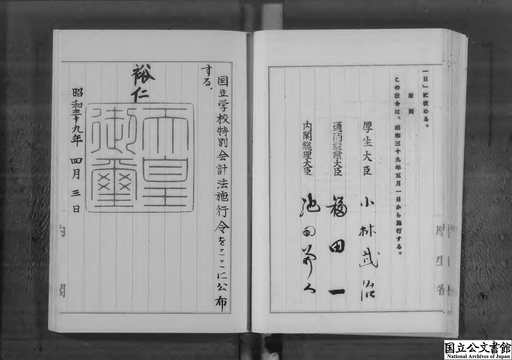 一日」に改める。
附則
この政令は、昭和三十九年五月一日から施行する。
厚生大臣 小林武治
通商産業大臣 福田一
内閣総理大臣 池田勇人
国立学校特別会計法施行令をここに公布
する。
裕仁
天皇御璽
昭和三十九年 四月 三日
内閣
厚生省
国立公文書館
National Archives of Japan